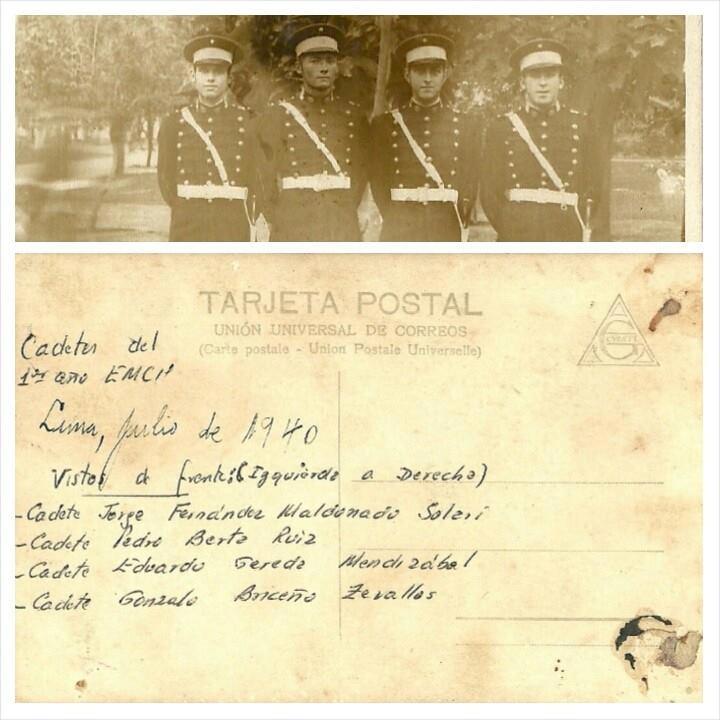 TARJETA POSTAL
UNIÓN UNIVERSAL DE CORREOS
(Carte postale - Union Postale Universelle)
Cadetes del
1er año EMCH
Lima, Julio de 1940
Vistos de frente: (Izquierda a Derecha)
- Cadete Jorge Fernández Maldonado Solari
- Cadete Pedro Berta Ruiz
- Cadete Eduardo Gereda Mendizábal
- Cadete Gonzalo Briceño Zevallos